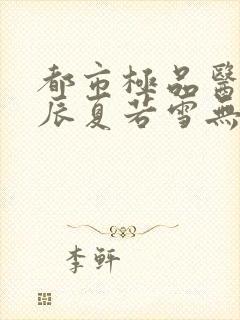 都市極品醫
辰夏若雪無
李軒